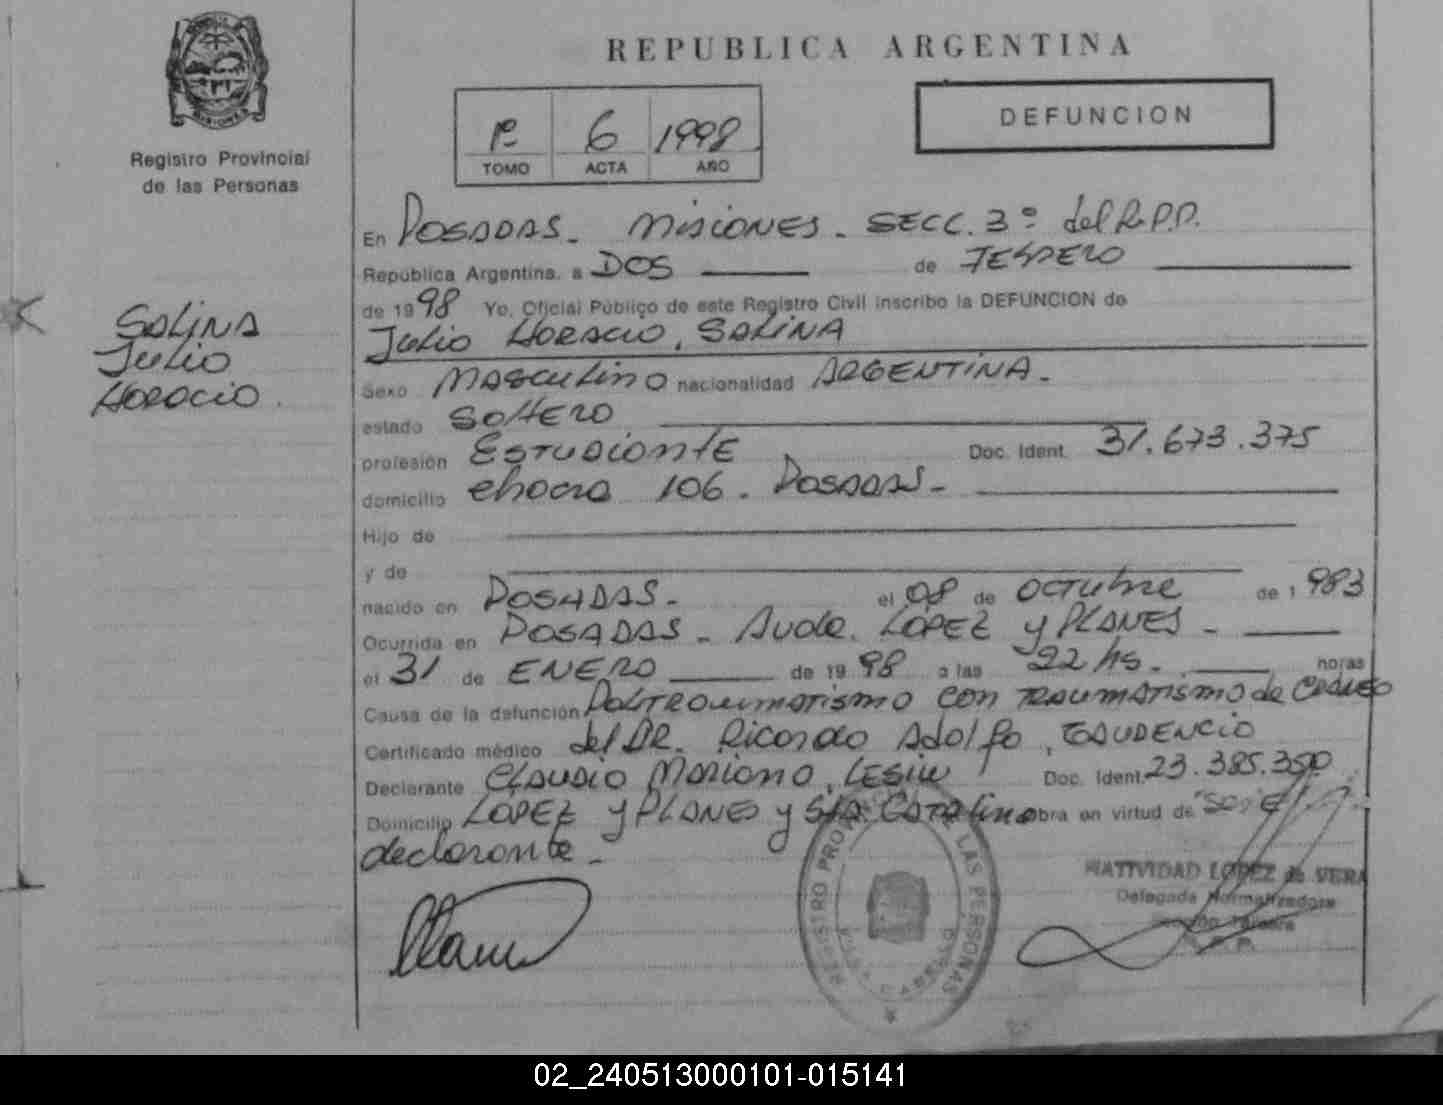 REPUBLICA ARGENTINA
DEFUNCION
1º 6 1998
TOMO ACTA AÑO
MISIONES
Registro Provincial
de las Personas
SALINA
JULIO
HORACIO.
En POSADAS - MISIONES - SECC. 3º del R.P.P.
República Argentina, a DOS de FEBRERO
de 1998 Yo, Oficial Público de este Registro Civil inscribo la DEFUNCION de
JULIO HORACIO, SALINA
Sexo MASCULINO nacionalidad ARGENTINA -
estado SOLTERO
profesión ESTUDIANTE Doc. Ident. 31.673.375
domicilio chacra 106. POSADAS -
Hijo de
y de
nacido en POSADAS - el 08 de OCTUBRE de 1983
Ocurrida en POSADAS - Avda. LOPEZ y PLANES -
el 31 de ENERO de 1998 a las 22 hs. horas
Causa de la defunción POLITRAUMATISMO CON TRAUMATISMO de CRANEO
Certificado médico del DR. Ricardo Adolfo, GAUDENCIO
Declarante CLAUDIO MARIANO, Doc. Ident. 23.385.350
Domicilio LOPEZ y PLANES y Sta CATALINA obra en virtud de "SER" EL
declarante -
REGISTRO PROVINCIAL DE LAS PERSONAS
VILLA CABELLO
NATIVIDAD LOPEZ de VERA
Delegada Normalizadora
Sección Tercera
R. P. P.
02_240513000101-015141